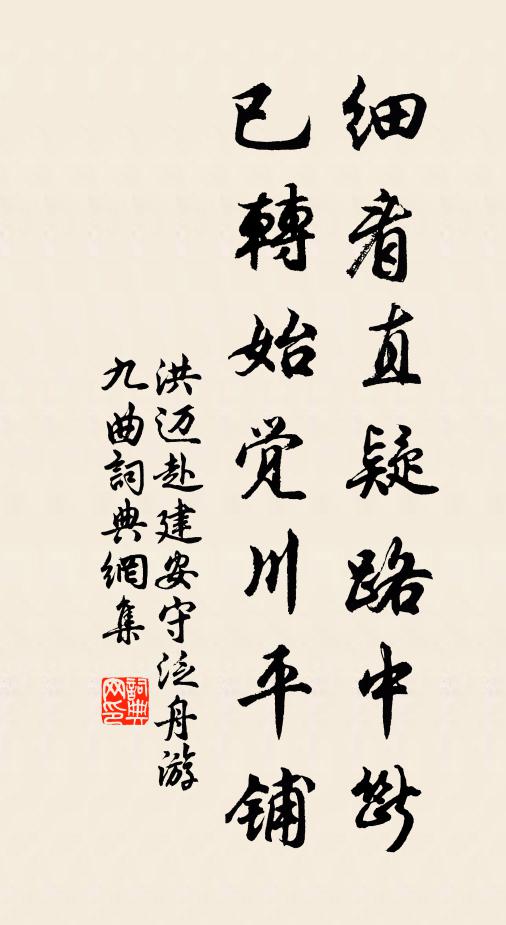 细看直疑路中断
已轉始觉川平铺
洪迈赴建安守泛舟游
九曲詞典網集
詞典网印